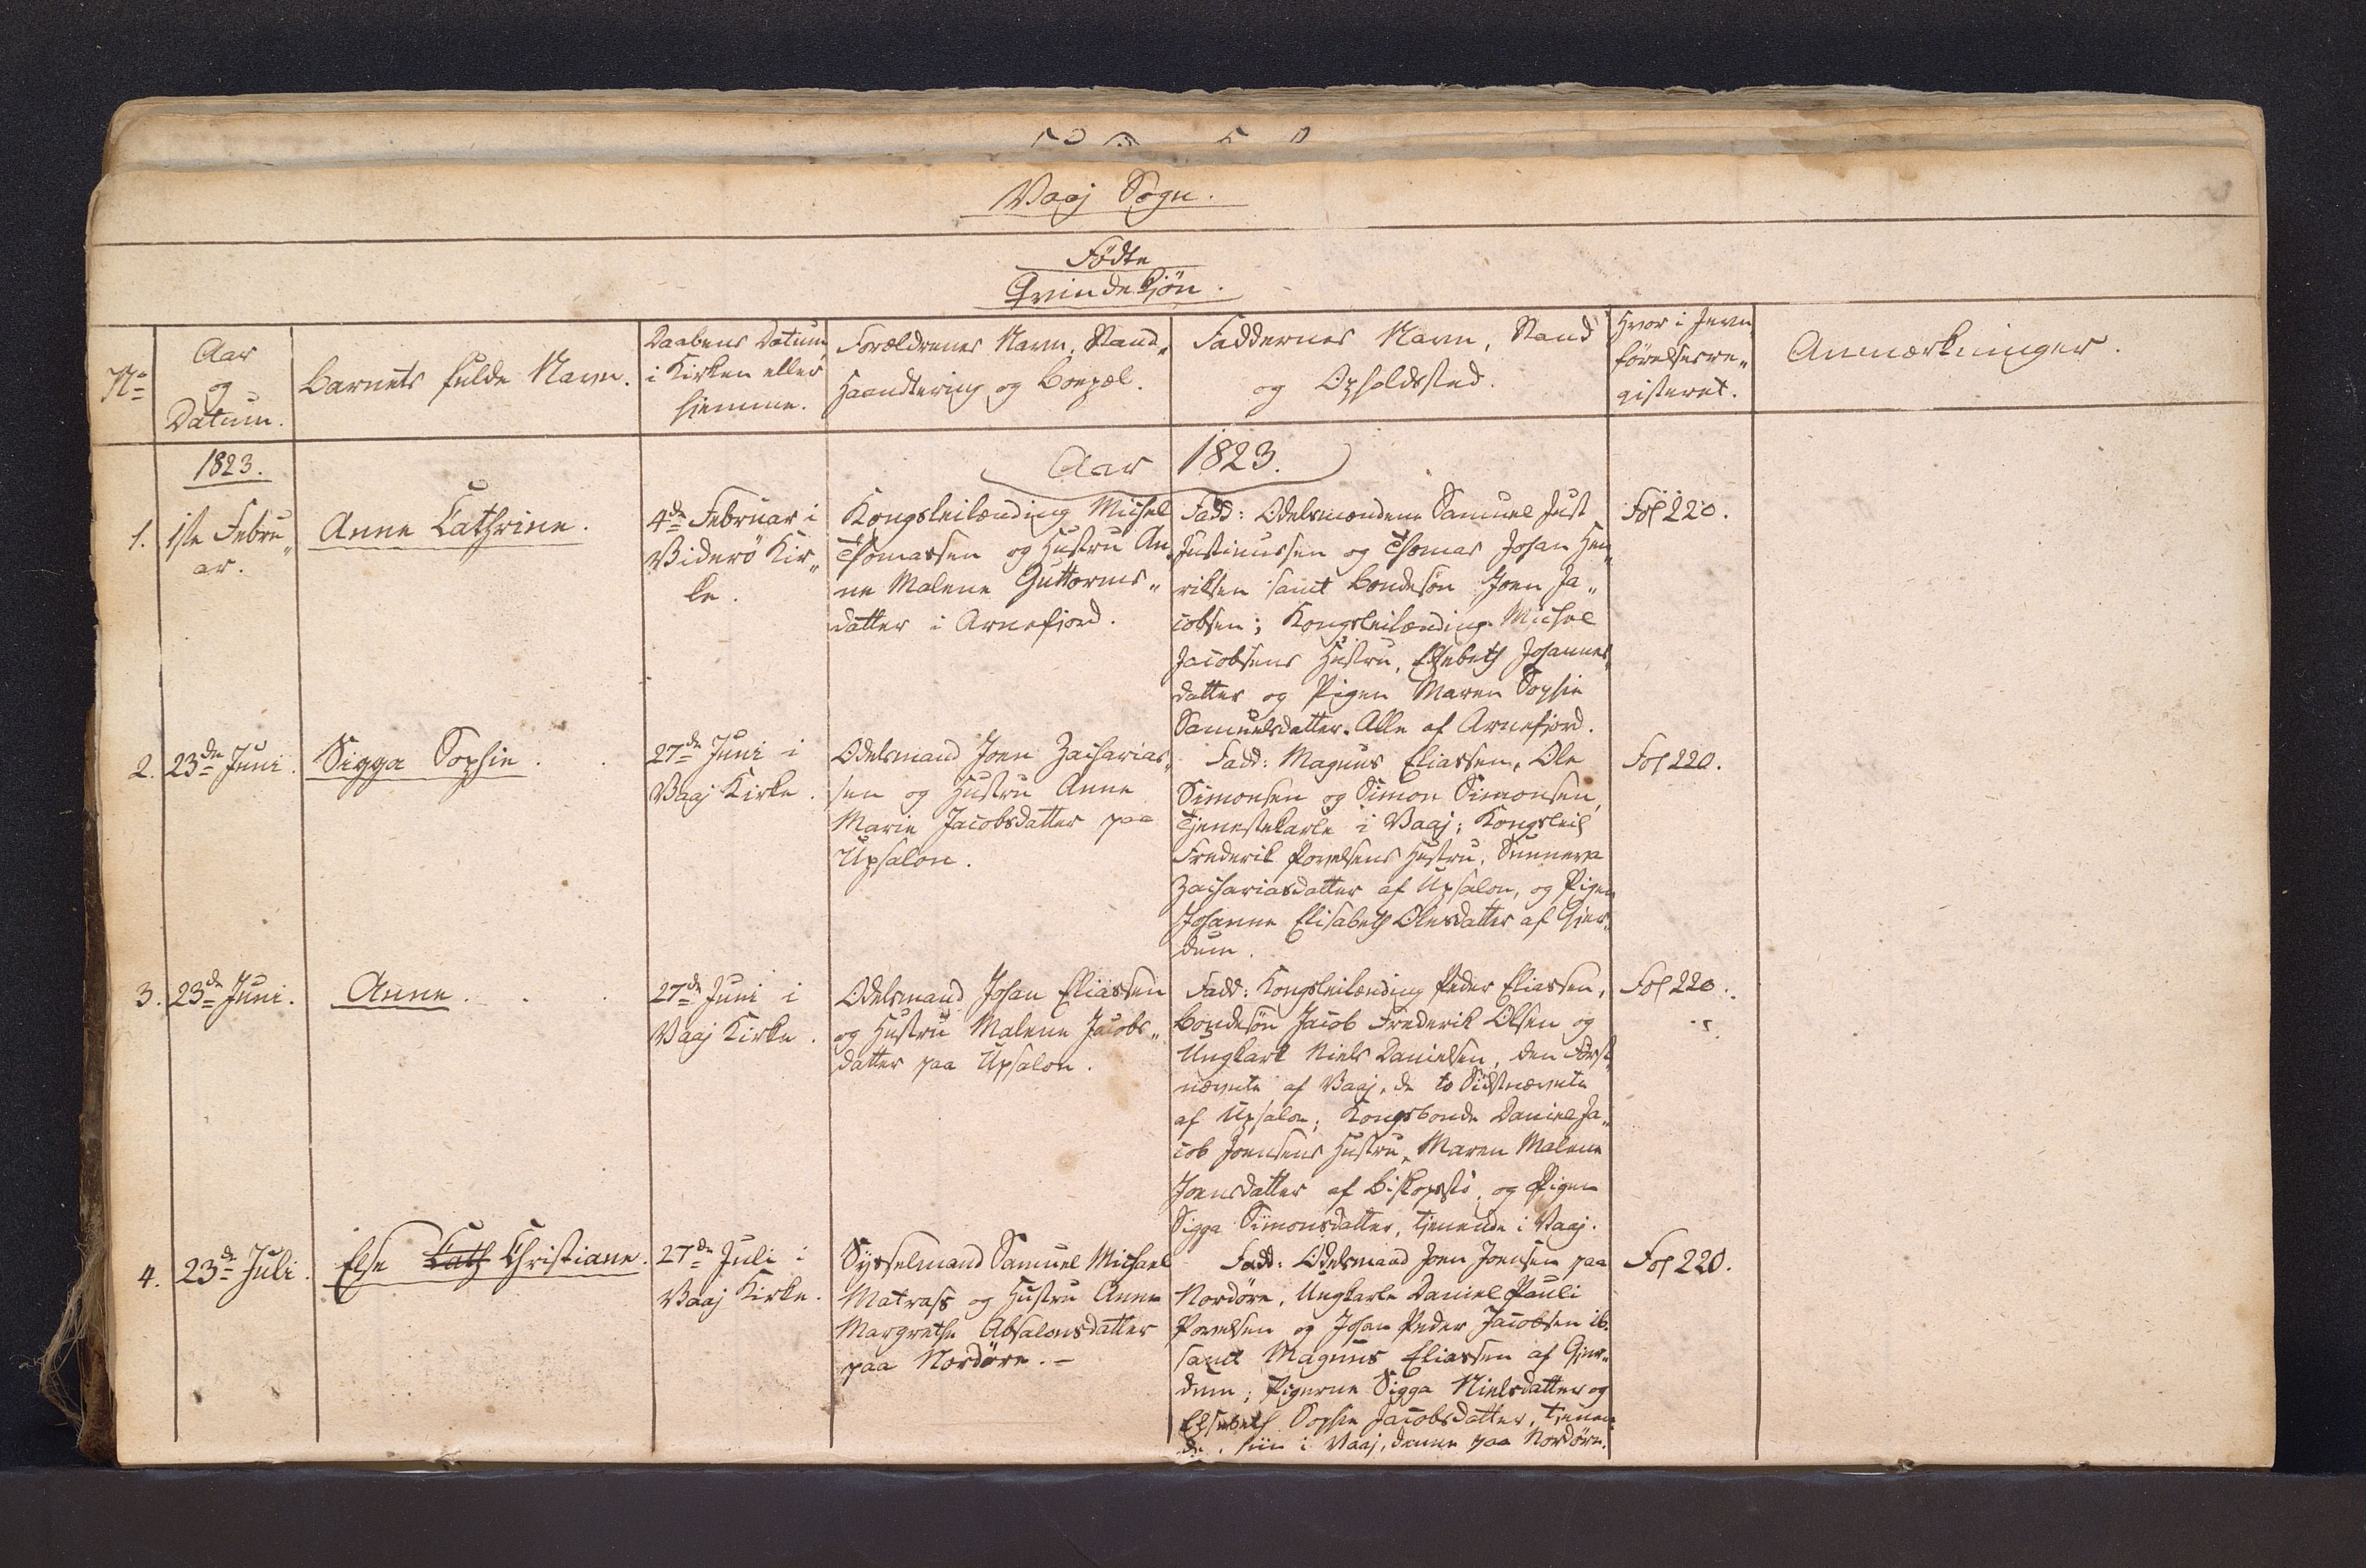 Vaaj Sogn.
Födte
Qvindekjön.
No
Aar
og
Datum.
Barnets fulde Navn.
Daabens Datum
i Kirken eller
hiemme.
Forældrenes Navn, Stand,
Haandtering og Boepæl.
Faddernes Navn, Stand
og Opholdsted.
Hvor i Jevn„
förelsesre„
gisteret.
Anmærkninger.
1823.
Aar 1823.
1.
1ste Febru„
ar.
Anne Cathrine.
4de Februar i
Viderö Kir„
ke.
Kongsleilænding Michel
Thomassen og Hustru An„
ne Malene Guttorms„
datter i Arnefjord.
Fadd: Odelsmændene Samuel Just
Justinussen og Thomas Johan Hen„
riksen samt Bondesön Joen Ja„
cobsen; Kongsleilænding Michel
Jacobsens Hustru, Elsebeth Johannes„
datter og Pigen Maren Sophie
Samuelsdatter. Alle af Arnefjord.
Fol 220.
2.
23de Juni.
Sigga Sophie.
27de Juni i
Vaaj Kirke.
Odelsmand Joen Zacharias„
sen og Hustru Anne
Marie Jacobsdatter paa
Upsalon.
Fadd: Magnus Eliassen, Ole
Simonsen og Simon Simonsen,
Tjenestekarle i Vaaj; Kongsleil
Frederik Povelsens Hustru, Sunneva
Zachariasdatter af Upsalon, og Pigen
Johanne Elisabeth Olesdatter af Gjer„
dum.
Fol 220.
3.
23de Juni.
Anne.
27de Juni i
Vaaj Kirke.
Odelsmand Johan Eliassen
og Hustru Malene Jacobs„
datter paa Upsalon.
Fadd: Kongsleilænding Peder Eliassen,
Bondesön Jacob Frederik Olsen og
Ungkarl Niels Danielsen, den Först„
nævnte af Vaaj, de to Sidstnævnte
af Upsalon; Kongsbonde Daniel Ja„
cob Joensens Hustru, Maren Malene
Joensdatter af Biskopstö, og Pigen
Sigga Simonsdatter, tjenende i Vaaj.
Fol 220.
4.
23de Juli.
Else Cath Christiane.
27de Juli i
Vaaj Kirke.
Sysselmand Samuel Michael
Matrass og Hustru Anne
Margrethe Absalonsdatter
paa Nordöre.-
Fadd: Odelsmand Joen Joensen paa
Nordöre, Ungkarle Daniel Pauli
Povelsen og Johan Peder Jacobsen ib.
samt Magnus Eliassen af Gjer„
dum; Pigerne Sigga Nielsdatter og
Elsebeth Sophie Jacobsdatter, tjenen„
de, hiin i Vaaj, denne paa Nordöre.
Fol 220.